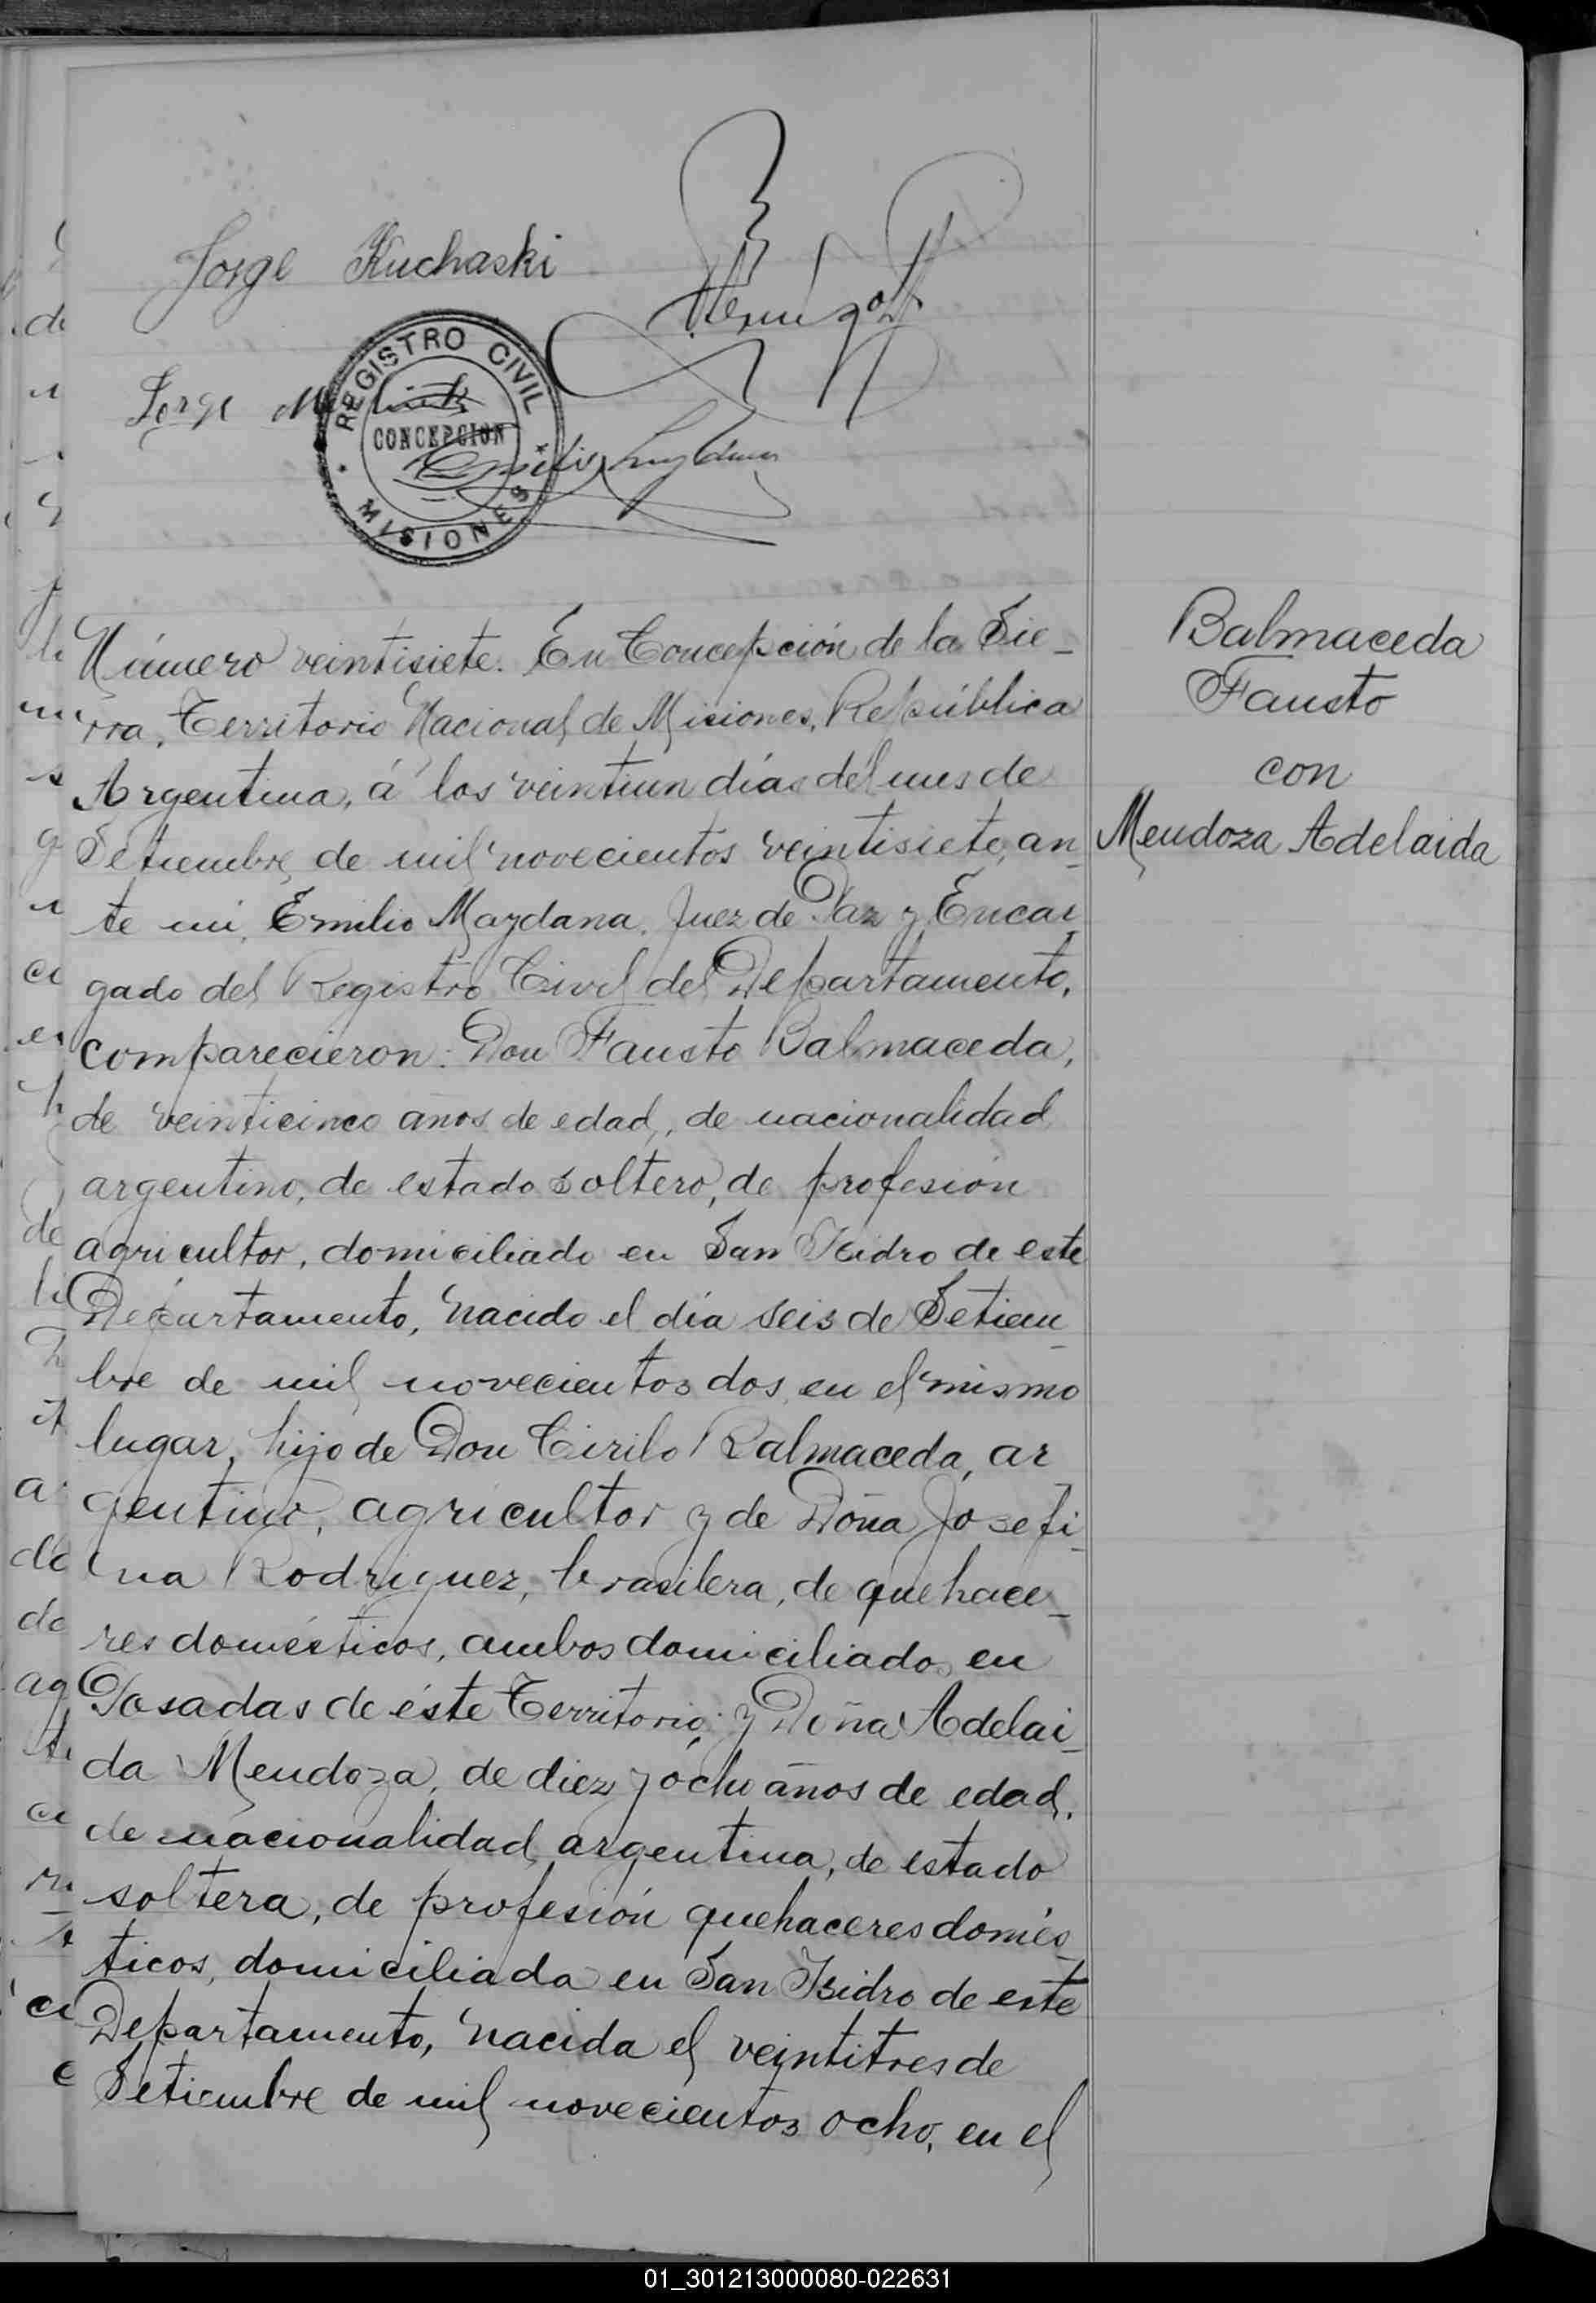 Jorge Kuchaski
Jorge
REGISTRO CIVIL
CONCEPCION
MISIONES
Número veintisiete. En Concepción de la Sie-
rra, Territorio Nacional de Misiones, República
Argentina, á los veintiun días del mes de
Setiembre de mil novecientos veintisiete, an-
te mi, Emilio Maydana, Juez de Paz y Encar-
gado del Registro Civil del Departamento,
comparecieron: Don Fausto Balmaceda,
de veinticinco años de edad, de nacionalidad
argentino, de estado soltero, de profesión
agricultor, domiciliado en San Isidro de este
Departamento, nacido el día seis de Setiem-
bre de mil novecientos dos, en el mismo
lugar, hijo de Don Cirilo Balmaceda, ar-
gentino, agricultor y de Doña Josefi-
na Rodriguez, brasilera, de quehace-
res domésticos, ambos domiciliados en
Posadas de éste Territorio; y Doña Adelai-
da Mendoza, de diez y ocho años de edad,
de nacionalidad argentina, de estado
soltera, de profesión quehaceres domés-
ticos, domiciliada en San Isidro de este
Departamento, nacida el veintitres de
Setiembre de mil novecientos ocho, en el
Balmaceda
Fausto
con
Mendoza Adelaida
01_301213000080-022631